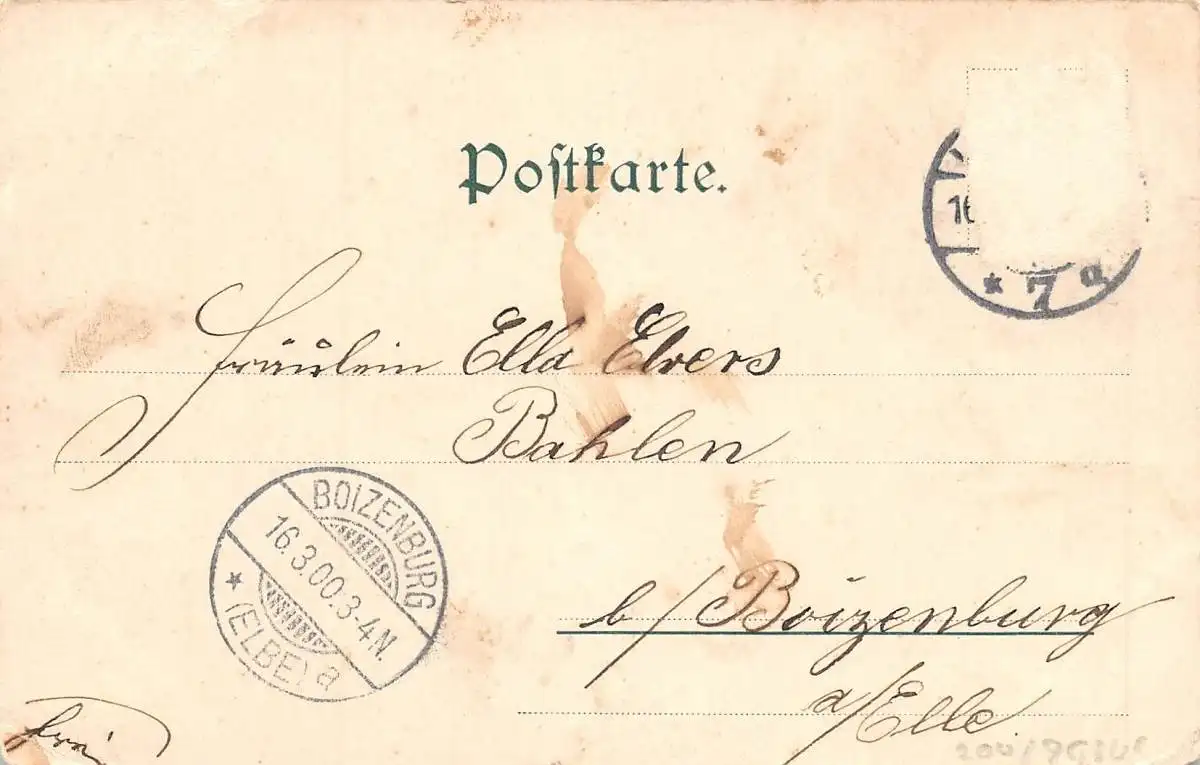 Postkarte.
16
* 7 a
Fräulein Ella Elvers
Bahlen
BOIZENBURG
16.3.00.3-4N.
* (ELBE) a
b/Boizenburg
a/Elbe.
frei